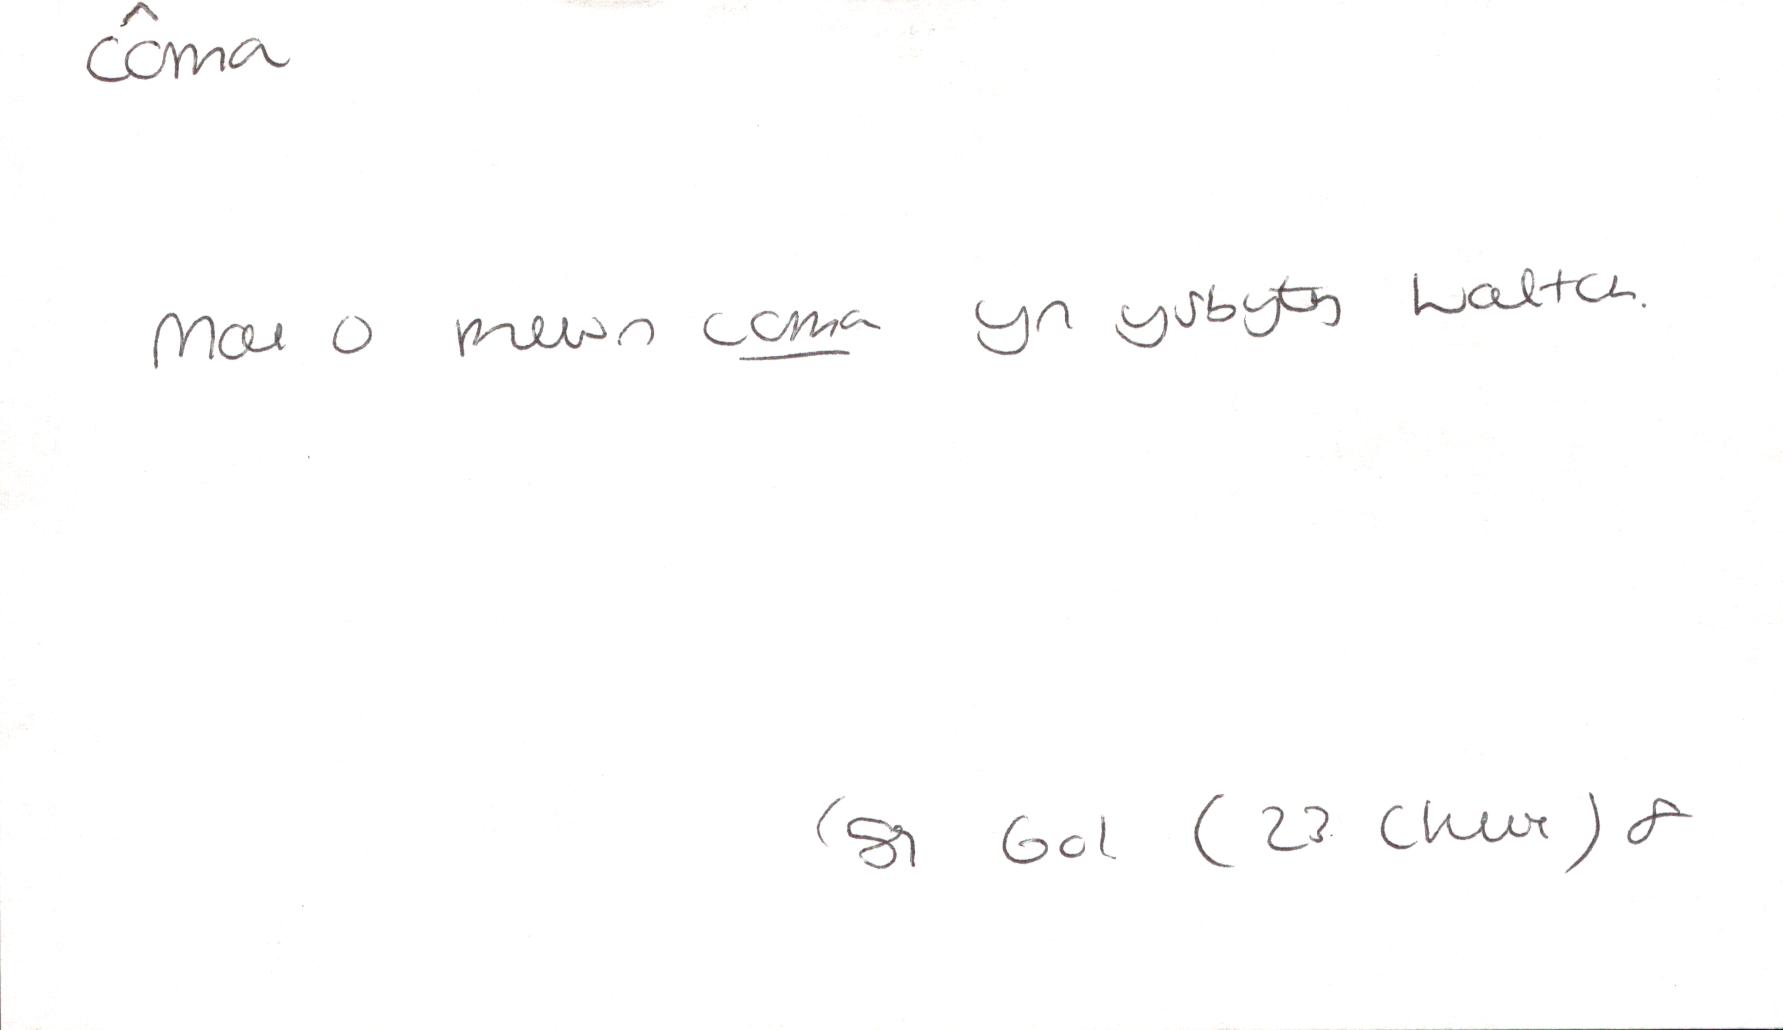 côma
Mae o mewn coma yn ysbyty Walton.
Gol (23 Chwe)